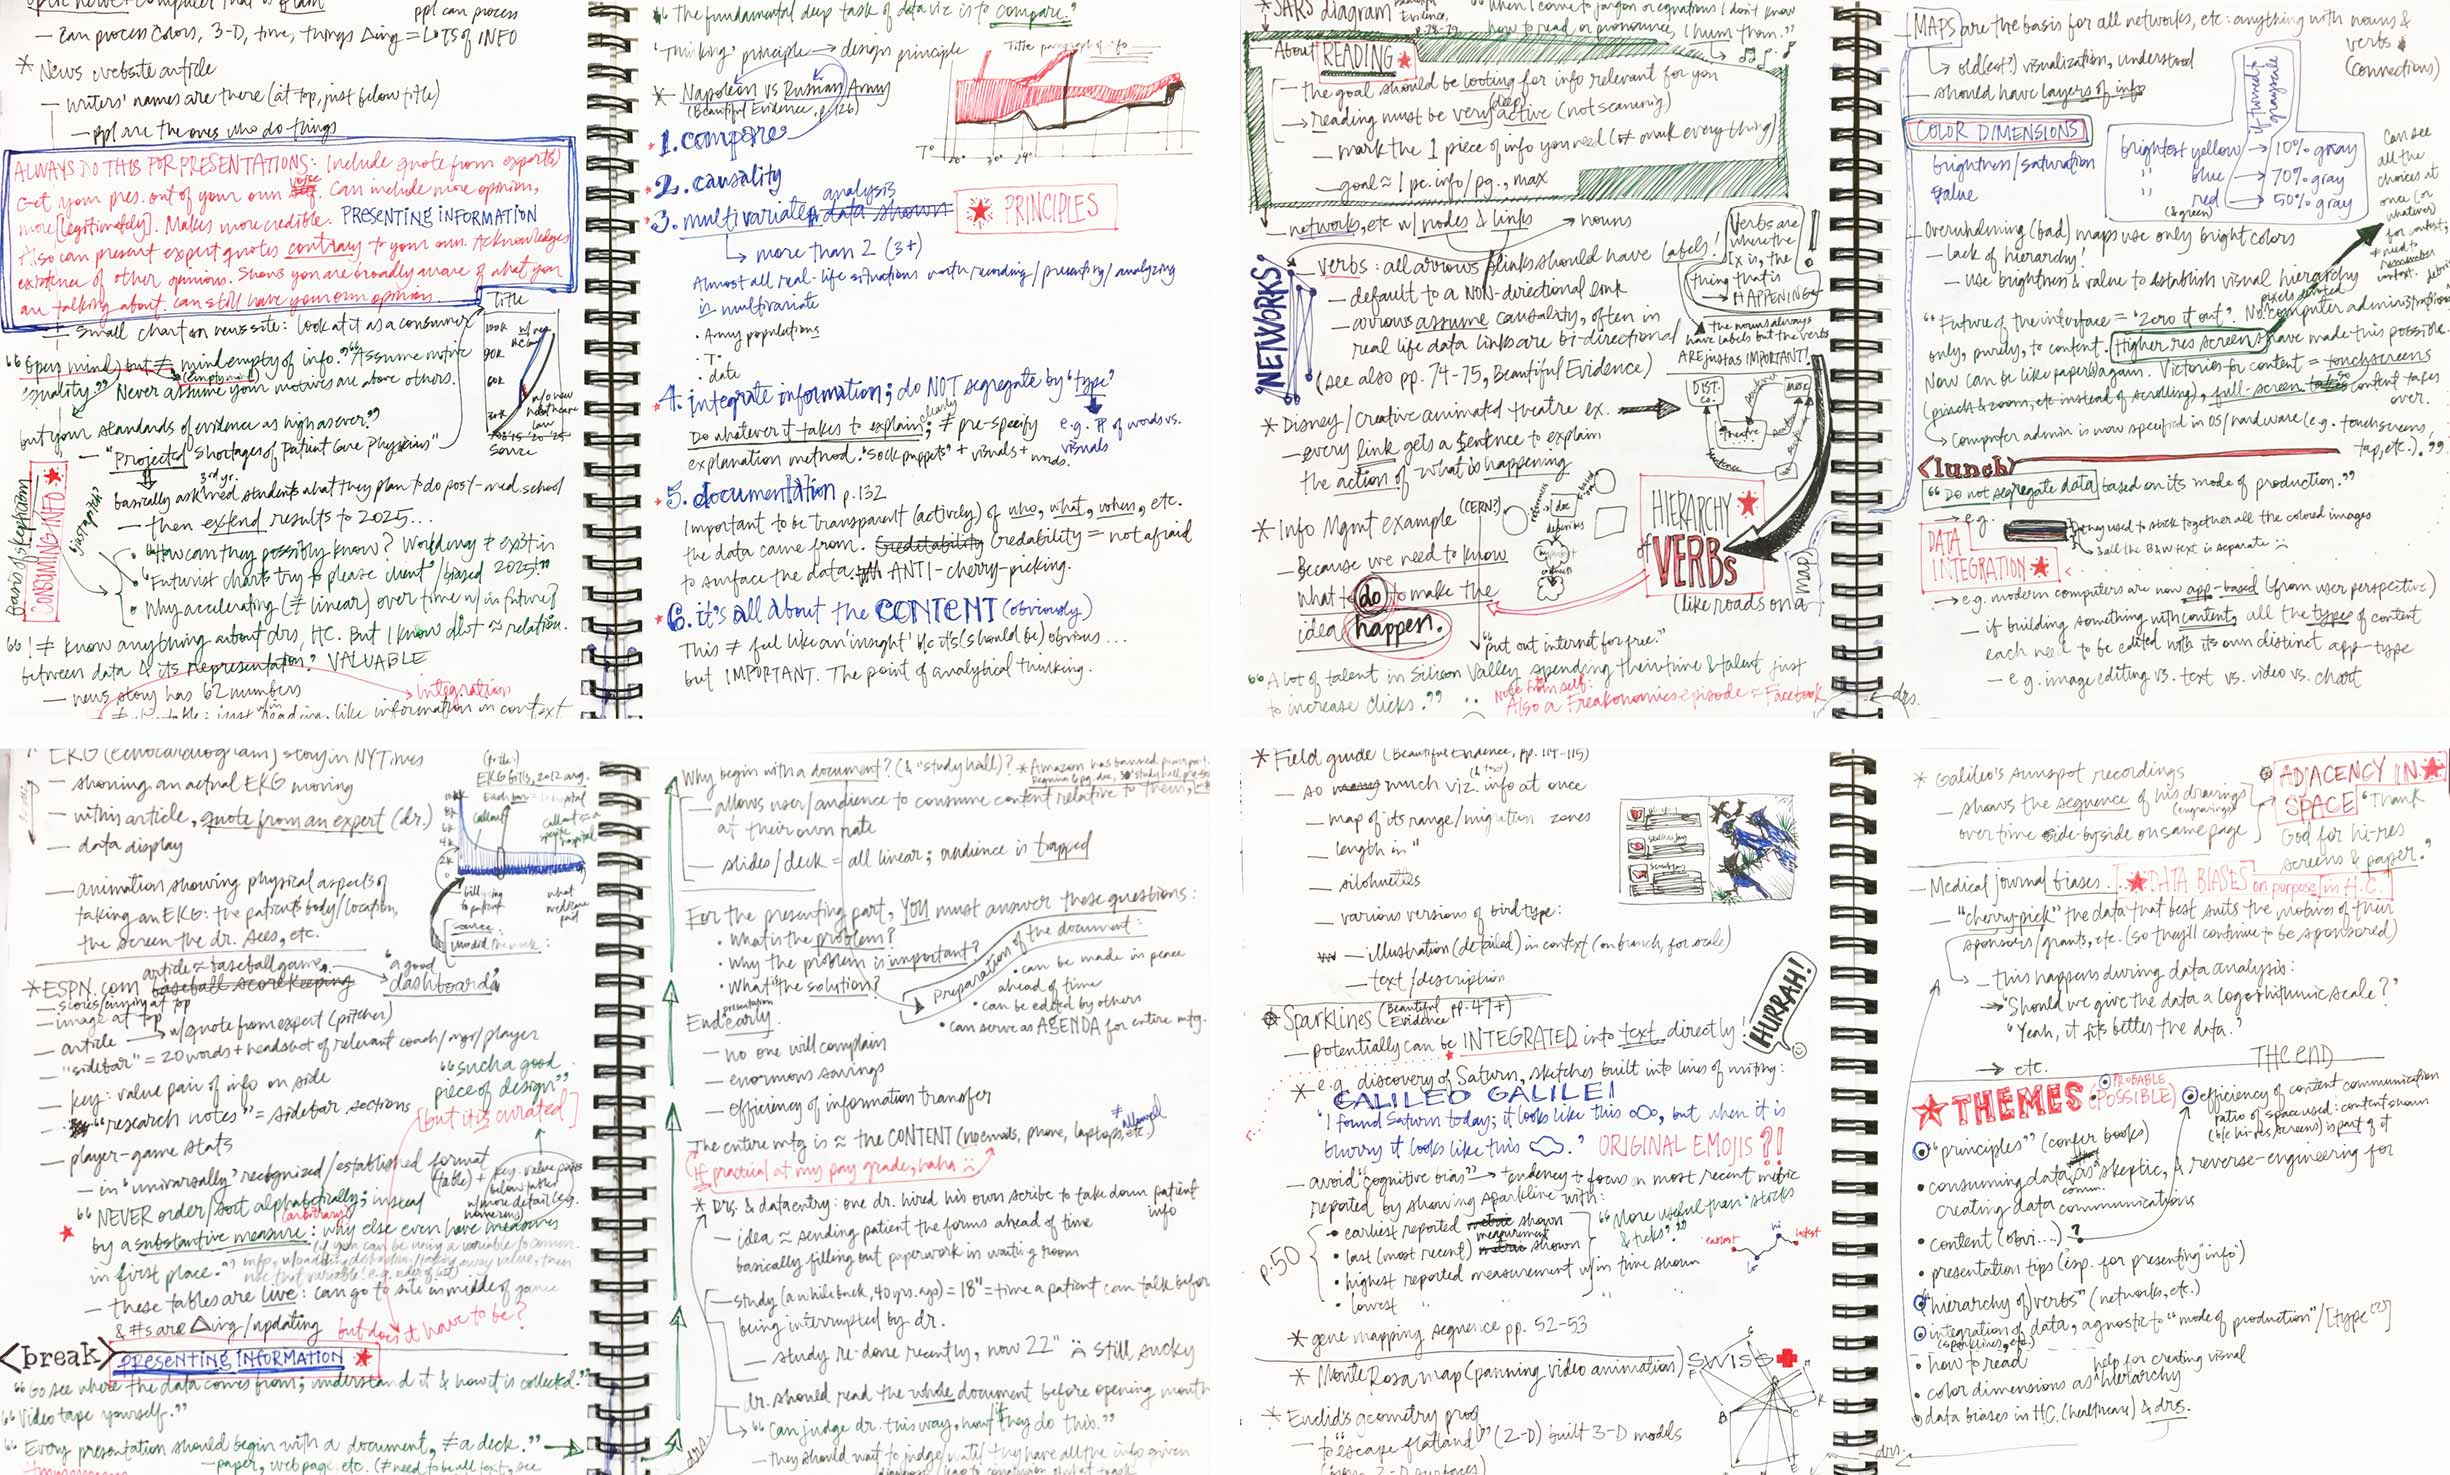 ppl can process
— can process colors, 3-D, time, things Δing = LOTS of INFO
* News website article
— writers' names are there (at top, just below title)
— ppl are the ones who do things
ALWAYS DO THIS FOR PRESENTATIONS: Include quote from experts
Get your pres. out of your own voice. Can include more opinion,
more [legitimately]. Makes more credible. PRESENTING INFORMATION
Also can present expert quotes contrary to your own. Acknowledges
existence of other opinions. Shows you are broadly aware of what you
are talking about. Can still have your own opinion.
— small chart on news site: look at it as a consumer
Title
"Open mind) but ≠ mind empty of info." "Assume motive
(empty mind)
equality." Never assume your motives are above others.
but your standards of evidence as high as ever?"
— "Projected Shortages of Patient Care Physicians"
3rd yr.
basically ask med students what they plan to do post-med school
— then extend results to 2025...
• "How can they possibly know? Workday ≠ exist in 2025!"
• "Futurist charts try to please client"/biased
• Why accelerating (≠ linear) over time w/in future?
Basis of skepticism
CONSUMING INFO
"I ≠ know anything about drs, HC. But I know alot ≈ relation.
between data & its representation." VALUABLE
— news story has 62 numbers
→ integration
"The fundamental deep task of data viz is to compare."
'Thinking' principle → design principle
* Napoleon vs Russian Army
(Beautiful Evidence, p.126)
1. compare
2. causality
3. multivariate analysis data shown
PRINCIPLES
↳ more than 2 (3+)
Almost all real-life situations worth recording/presenting/analyzing
is multivariate
• Army populations
• T°
• date
4. integrate information; do NOT segregate by "type"
Do whatever it takes to explain; ≠ pre-specify
clearly
e.g. # of words vs. visuals
explanation method. "Sock puppets" + visuals + words.
5. documentation p.132
Important to be transparent (actively) of who, what, when, etc.
the data came from. Creditability Credability = not afraid
to surface the data. ANTI-cherry-picking.
6. it's all about the CONTENT (obviously)
This ≠ feel like an 'insight' b/c it's (should be) obvious...
but IMPORTANT. The point of analytical thinking.
* SARS diagram
"When I come to jargon or equations I don't know
how to read or pronounce, I hum them."
About READING
— the goal should be looking for info relevant for you
→ reading must be very active (not scanning)
(deep)
— mark the 1 piece of info you need (≠ mark everything)
— goal ≈ 1 pc. info/pg., max
— networks, etc w/ nodes & links → nouns
NETWORKS
— verbs: all arrows & links should have labels!
— default to a NON-directional link
— arrows assume causality, often in
real life data links are bi-directional
(see also pp. 74-75, Beautiful Evidence)
Verbs are
where the
thing that is
HAPPENING
the nouns always
have labels but the verbs
ARE just as IMPORTANT!
* Disney/creative animated theatre ex.
— every link gets a sentence to explain
the action of what is happening
* Info Mgmt example (CERN?)
— Because we need to know
what to do to make the
idea happen.
HIERARCHY
of VERBS
(like roads on a map)
"put out internet for free."
"A lot of talent in Silicon Valley spending their time & talent just
to increase clicks."
Note from self:
Also a Freakonomics episode ≈ Facebook
— MAPS are the basis for all networks, etc: anything with nouns &
verbs
(connections)
↳ old(est?) visualization, understood
— should have layers of info
COLOR DIMENSIONS
brightness/saturation
value
if turned to grayscale
brightest yellow → 10% gray
" blue → 70% gray
" red → 50% gray
(& green)
Can see
all the
choices at
once (or
whatever)
for context;
≠ need to
remember
context.
— Overwhelming (bad) maps use only bright colors
— lack of hierarchy!
— use brightness & value to establish visual hierarchy
"Future of the interface = 'zero it out'. No computer administration
pixels devoted
only, purely, to content. Higher res screens have made this possible.
Now can be like paper again. Victories for content = touchscreens
(pinch & zoom, etc instead of scrolling), full-screen content takes
over.
↳ Computer admin is now specified in OS/hardware (e.g. touchscreens
tap, etc.)."
<lunch>
"Do not segregate data based on its mode of production."
→ e.g.
they used to stick together all the colored images
& all the B&W text is separate
DATA
INTEGRATION
→ e.g. modern computers are now app-based (from user perspective)
— if building something with content, all the types of content
each need to be edited with its own distinct app-type
— e.g. image editing vs. text vs. video vs. chart
EKG (echocardiogram) story in NYTimes
— showing an actual EKG moving
— within article, quote from an expert (dr.)
— data display
— animation showing physical aspects of
taking an EKG: the patient's body/location,
the screen the dr. sees, etc.
EKG bills, 2012 avg.
bill going
to patient
what
medicare
paid
source:
article ≈ baseball game
* ESPN.com baseball scorekeeping → "a good dashboard"
— scores/inning at top
— image at top
— article → w/quote from expert (pitcher)
— "sidebar" = 20 words + headshot of relevant coach/mgr/player
— key: value pair of info on side
"such a good
piece of design"
[but it is curated]
— "research notes" = sidebar sections
— player-game stats
— in "universally" recognized/established format
(table) + key: value pairs
below table
w/more detail
"NEVER order/sort alphabetically; instead
(arbitrary)
by a substantive measure: why else even have measures
in first place."
— these tables are live: can go to site in middle of game
& #s are Δing/updating
but does it have to be?
<break> PRESENTING INFORMATION
"Go see where the data comes from; understand it & how it is collected."
"Video tape yourself."
"Every presentation should begin with a document, ≠ a deck."
— paper, web page, etc. (≠ need to be all text, see
Why begin with a document? (& "study hall")?
— allows user/audience to consume content relative to them,
at their own rate
— slides/deck = all linear; audience is trapped
For the presenting part, YOU must answer these questions:
• What is the problem?
• Why the problem is important?
• What is the solution?
Preparation of the document:
• can be made in peace
ahead of time
• can be edited by others
• can serve as AGENDA for entire mtg.
presentation
End early.
— no one will complain
— enormous savings
— efficiency of information transfer
The entire mtg is ≈ the CONTENT (no emails, phone, laptops, etc.)
≠ allowed
If practical at my pay grade, haha
* Drs. & data entry: one dr. hired his own scribe to take down patient
info
— idea ≈ sending patient the forms ahead of time
basically filling out paperwork in waiting room
— study (a while back, 40 yrs. ago) = 18" = time a patient can talk before
being interrupted by dr.
— study re-done recently, now 22" still sucky
dr. should read the whole document before opening mouth
↳ "Can judge dr. this way, how/if they do this."
— they should wait to judge until they have all the info given
drs.
* Field guide (Beautiful Evidence, pp. 114-115)
— so many much viz. info at once
(& text)
— map of its range/migration zones
— length in "
— silohuettes
— various versions of bird type:
— illustration (detailed) in context (on branch, for scale)
— text/description
Sparklines (Beautiful Evidence pp. 47+)
— potentially can be INTEGRATED into text directly!
HURRAH!
* e.g. discovery of Saturn, sketches built into lines of writing:
GALILEO GALILEI
"I found Saturn today; it looks like this oOo, but when it is
blurry it looks like this." ORIGINAL EMOJIS?!
— avoid "cognitive bias" → tendency to focus on most recent metric
reported by showing sparkline with:
p.50
• earliest reported metric shown
measurement
• last (most recent) metric shown
• highest reported measurement w/in time shown
• lowest " "
"More useful than 'stocks
& ticks'?"
earliest
lo
hi
latest
* gene mapping sequence pp. 52-53
* Monte Rosa map (panning video animation) SWISS
* Euclid's geometry proof
— to "escape flatland" (2-D) built 3-D models
* Galileo's sunspot recordings
— shows the sequence of his drawings
(engravings)
over time side by side on same page
ADJACENCY IN
SPACE "Thank
God for hi-res
screens & paper."
— Medical journal biases. DATA BIASES on purpose in H.C.
— "cherry pick" the data that best suits the motives of their
sponsors/grants, etc. (so they'll continue to be sponsored)
— this happens during data analysis:
→ "Should we give the data a logorhithmic scale?"
"Yeah, it fits better the data."
→ etc.
THE END
THEMES (POSSIBLE)
PROBABLE
efficiency of content communication
ratio of space used: content shown
(b/c hi-res screens) is part of it
"principles" (confer books)
• consuming data as skeptic, & reverse-engineering for
creating data communications
• content (obvi....)?
• presentation tips (esp. for presenting "info")
"hierarchy of verbs" (networks, etc.)
integration of data, agnostic to "mode of production"/[type(?)]
(sparklines, etc.)
• how to read
• color dimensions as hierarchy
help for creating visual
• data biases in HC. (healthcare) & drs.